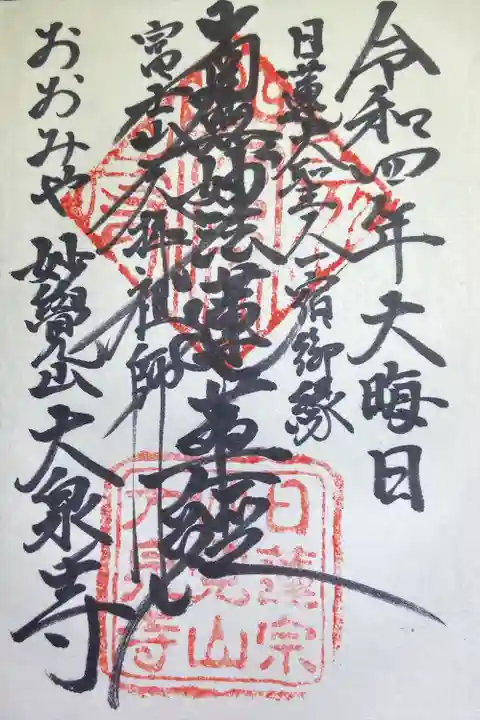 令和四年大晦日
日蓮大聖人一宿御縁
南無妙法蓮華経
富士山天拝祖師
おおみや 妙覺山大泉寺
日蓮宗
山
寺